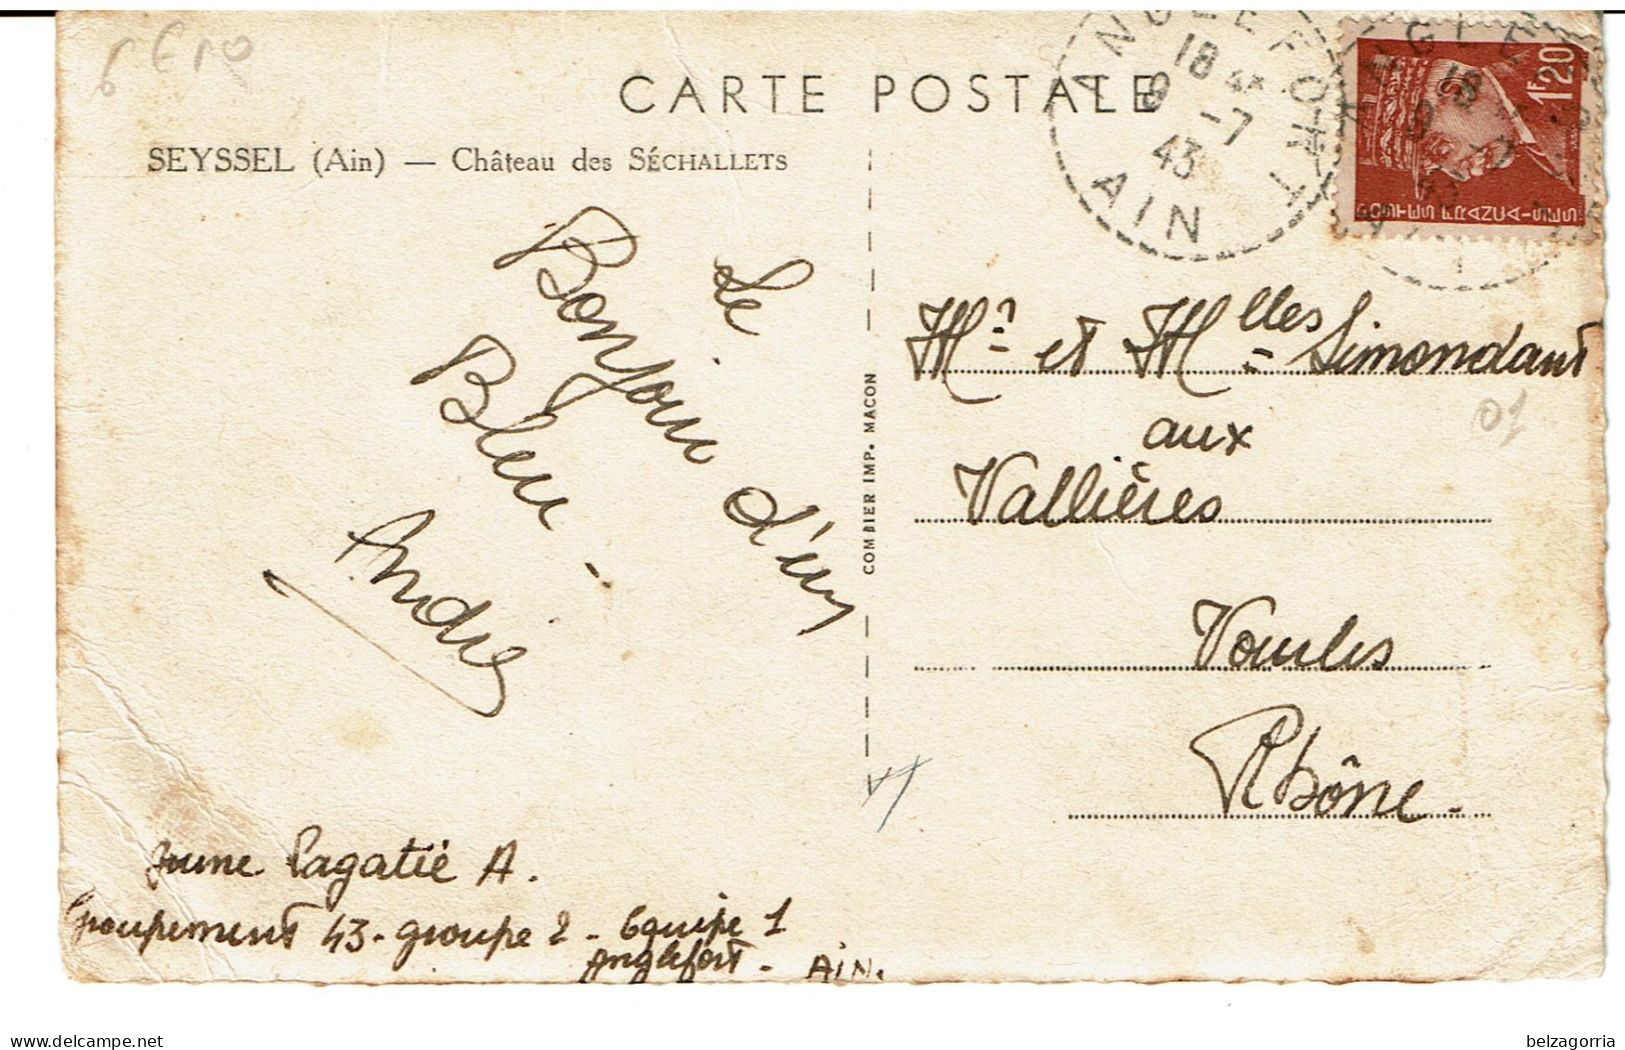 6 E 10
CARTE POSTALE
SEYSSEL (Ain) — Château des SÉCHALLETS
ANGLEFORT
18 45
9 -7
43
AIN
1F20
POSTES FRANÇAISES
Le
Bonjour d'un
Bleu -
André
COMBIER IMP. MACON
Mr et Mlles Simondant
aux
Vallières
Vourles
Rhône -
01
Jeune Pagatié A.
Groupement 43 - groupe 2 - Equipe 1
Anglefort - AIN.
www.delcampe.net
belzagorria